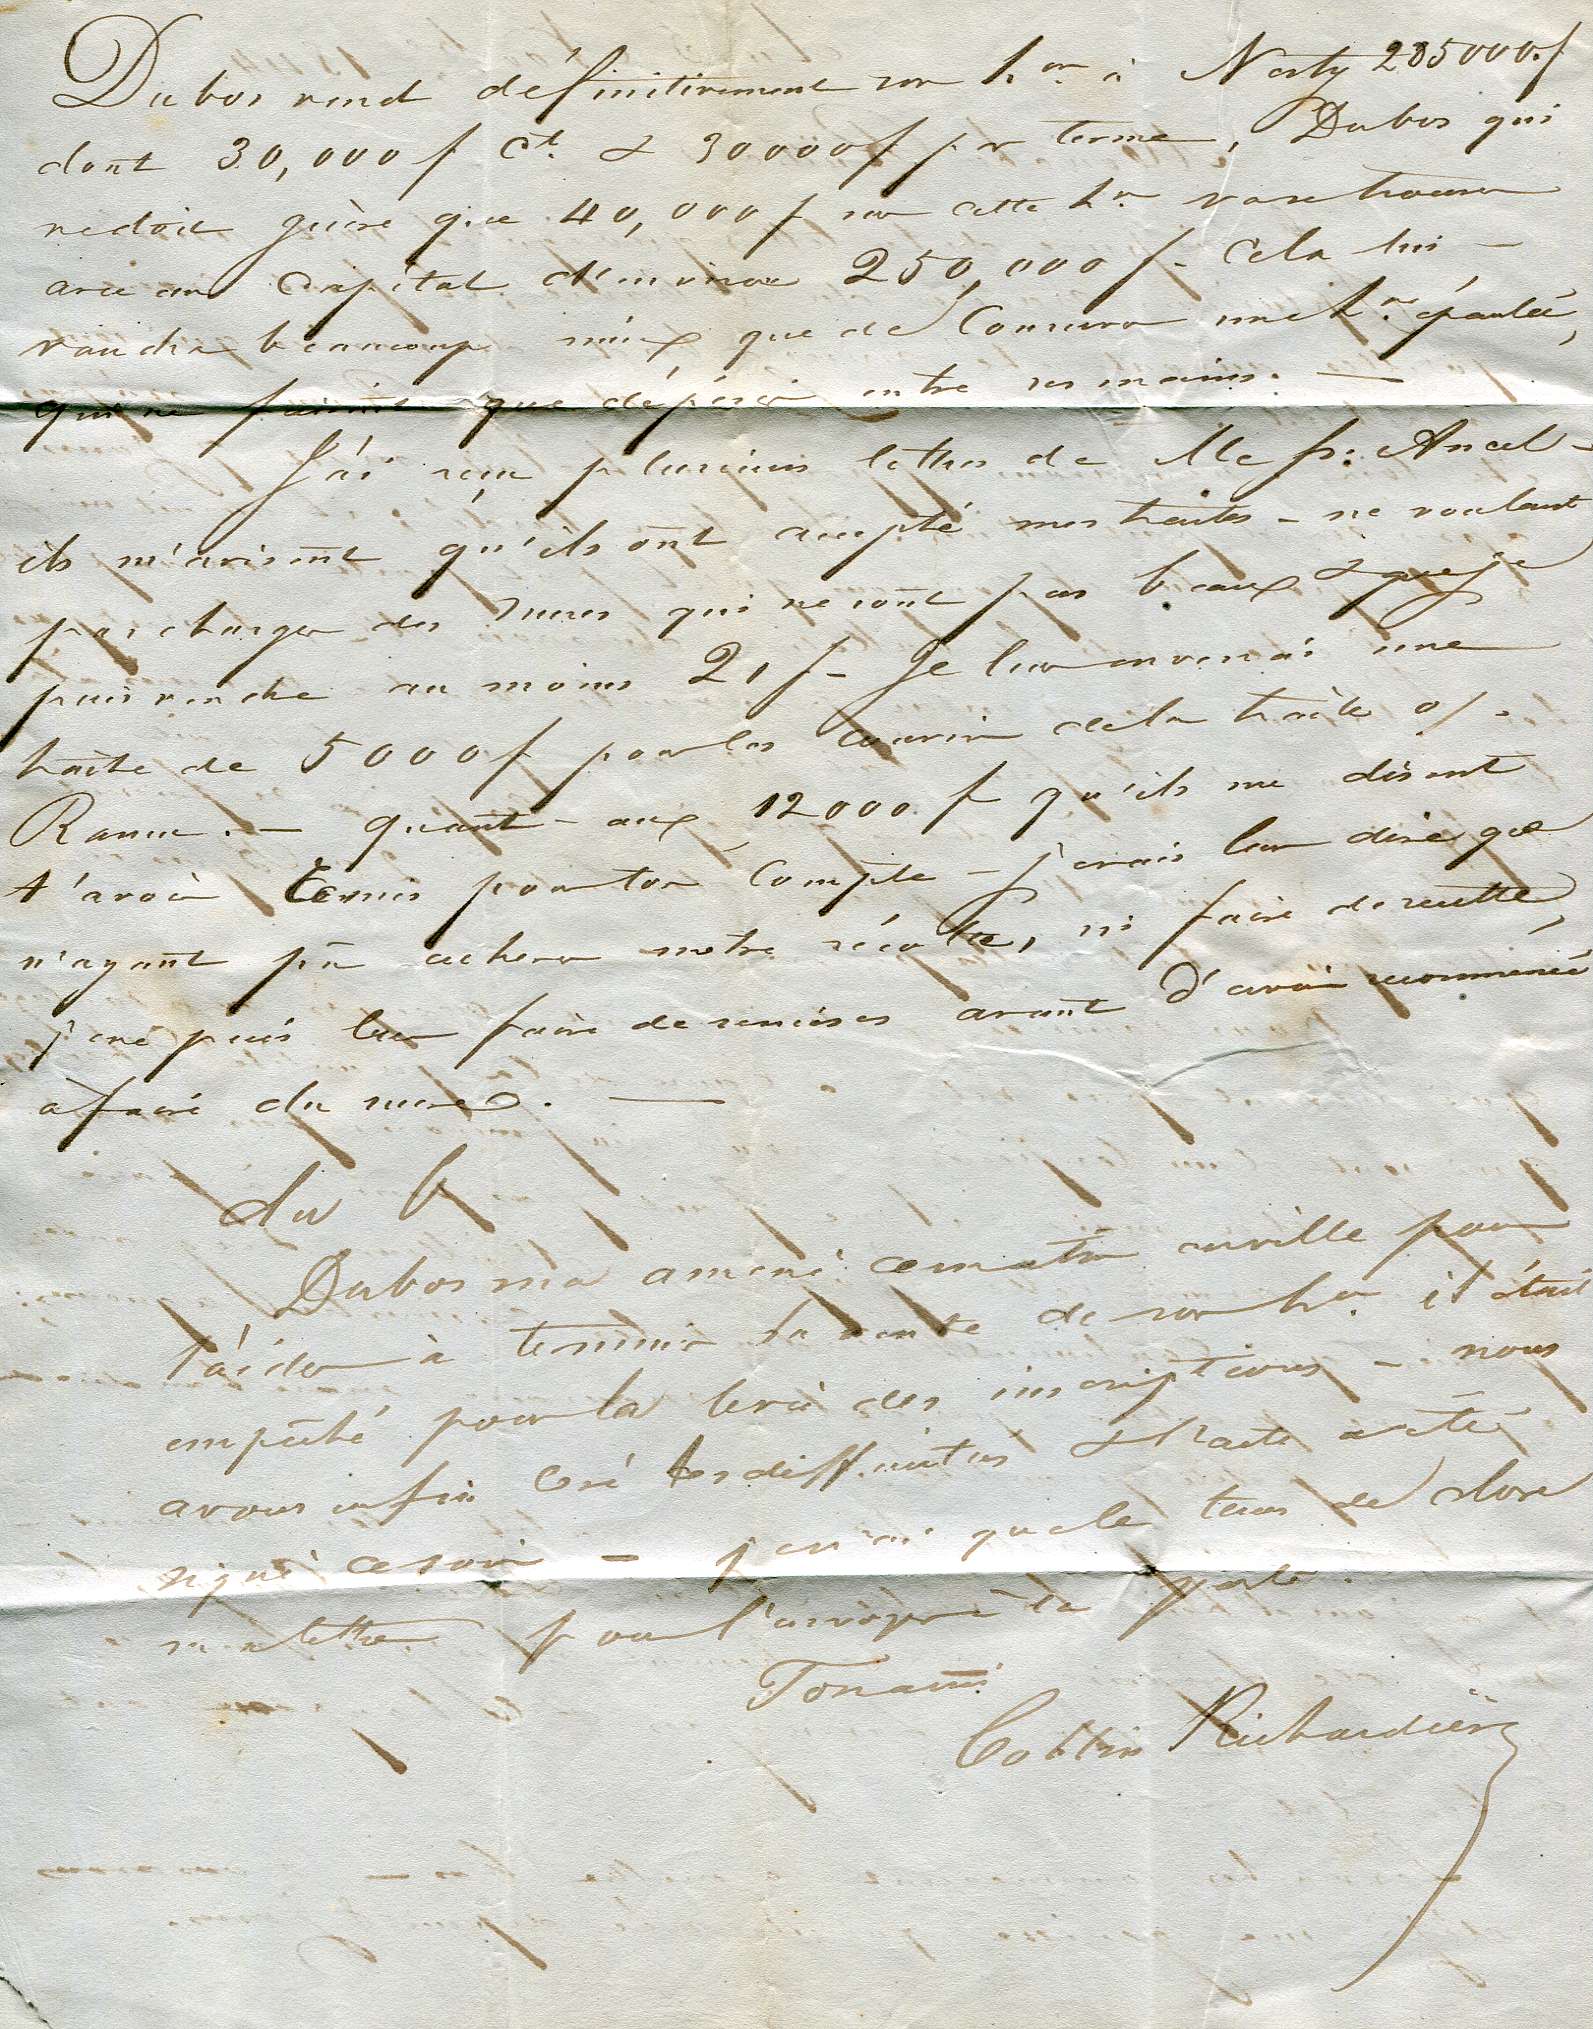 Dubos vend définitivement son h.on à Nesty 285000 f
dont 30,000 f Ct. & 30000 f par terme, Dubos qui
ne doit guère que 40,000 f sur cette h.on va se trouver
avec un capital d'environ 250,000 f. Cela lui
vaudra beaucoup mieux que de conserver une h.on épaulée,
qui ne ferait que dépérir entre ses mains. —
J'ai reçu plusieurs lettres de Mrs fs. Ancel -
ils m'avisent qu'ils ont accepté mes traites - ne voulant
pas charger des sucres qui ne sont pas beaux & que je
puis vendre au moins 21 f - je leur enverrai une
traite de 5000 f pour les couvrir de la traite o/.
Ramu. — quant aux 12000 f qu'ils me disent
t'avoir remis pour ton compte - je vais leur dire que
n'ayant pû achever notre récolte, ni faire de recette,
je ne puis leur faire de remises avant d'avoir recommencé
à faire du sucre. —
du 6
Dubos m'a amené ce matin en ville pour
l'aider à terminer la vente de son h.on il était
empêché pour la levée des inscriptions - nous
avons enfin levé les difficultés & l'acte a été
signé ce soir - je n'ai que le tems de clore
ma lettre pour l'envoyer à la poste.
Ton ami
Cottin Richardière